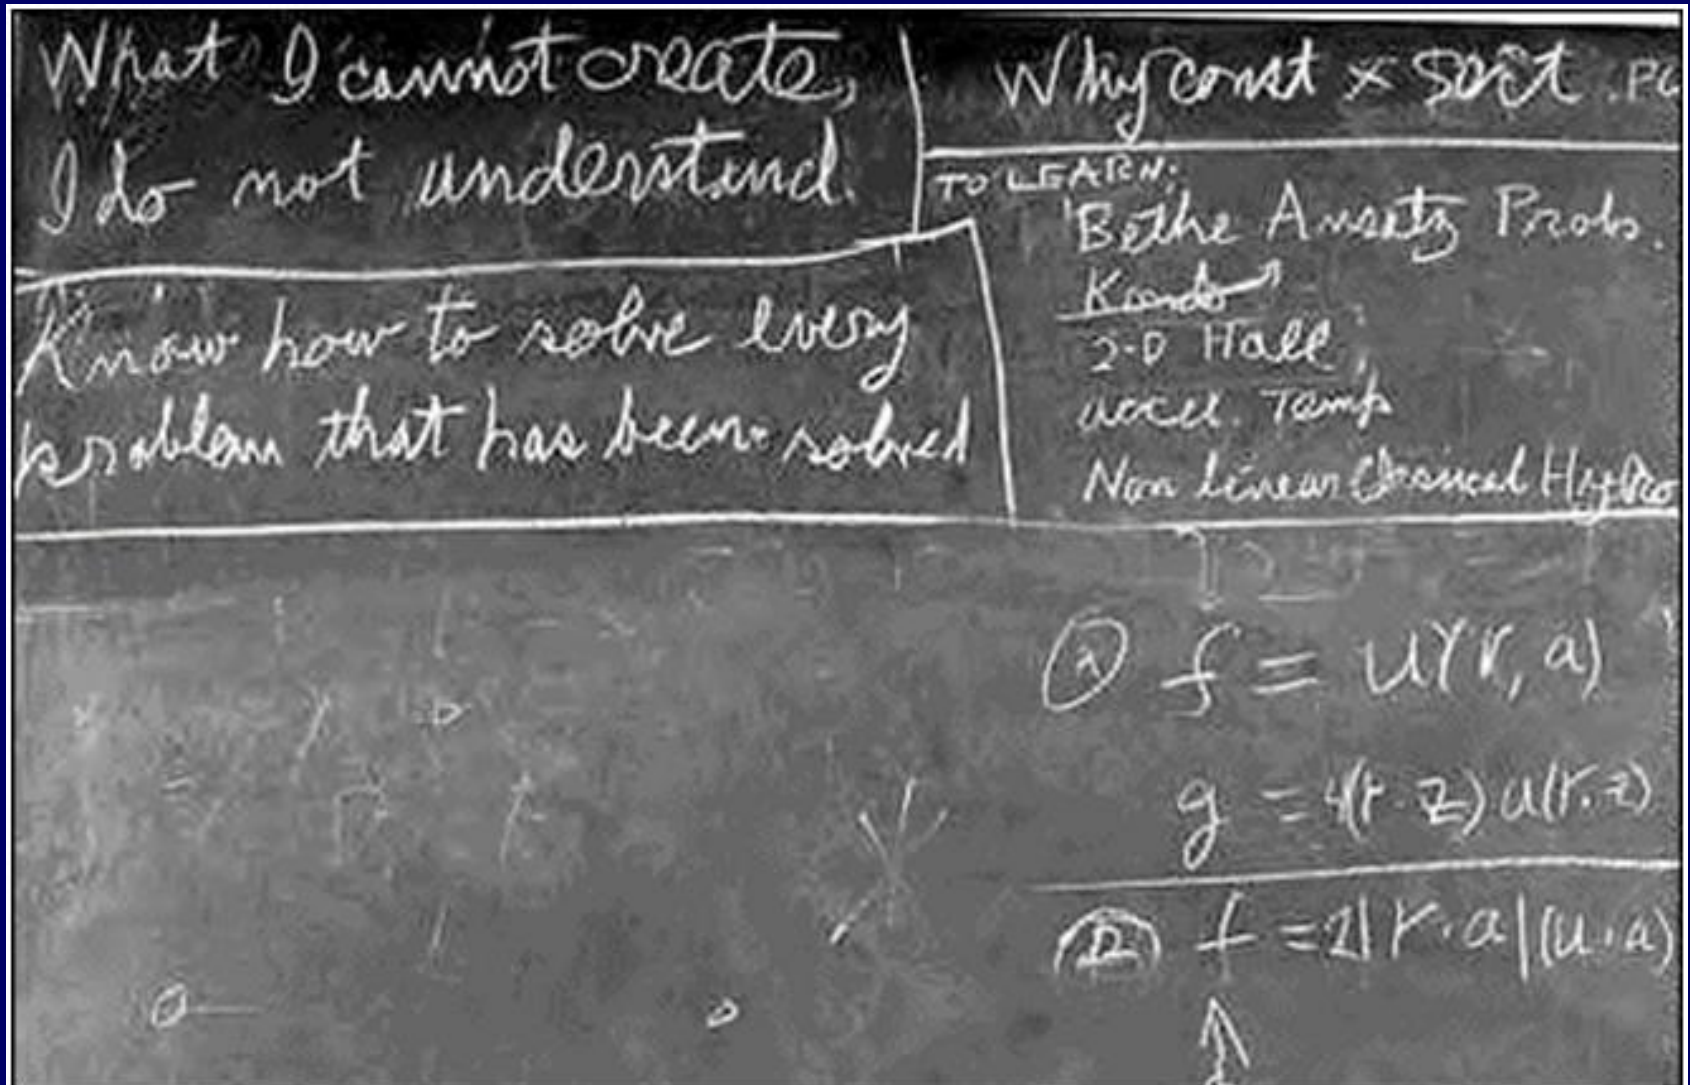 What I cannot create,
I do not understand.
Know how to solve every
problem that has been solved
Why const × sort . PG
TO LEARN:
Bethe Ansatz Probs.
Kondo
2-D Hall
accel. Temp
Non Linear Classical Hydro
f = u(r, a)
g = 4(r·z) u(r·z)
f = 2|r·a|(u·a)